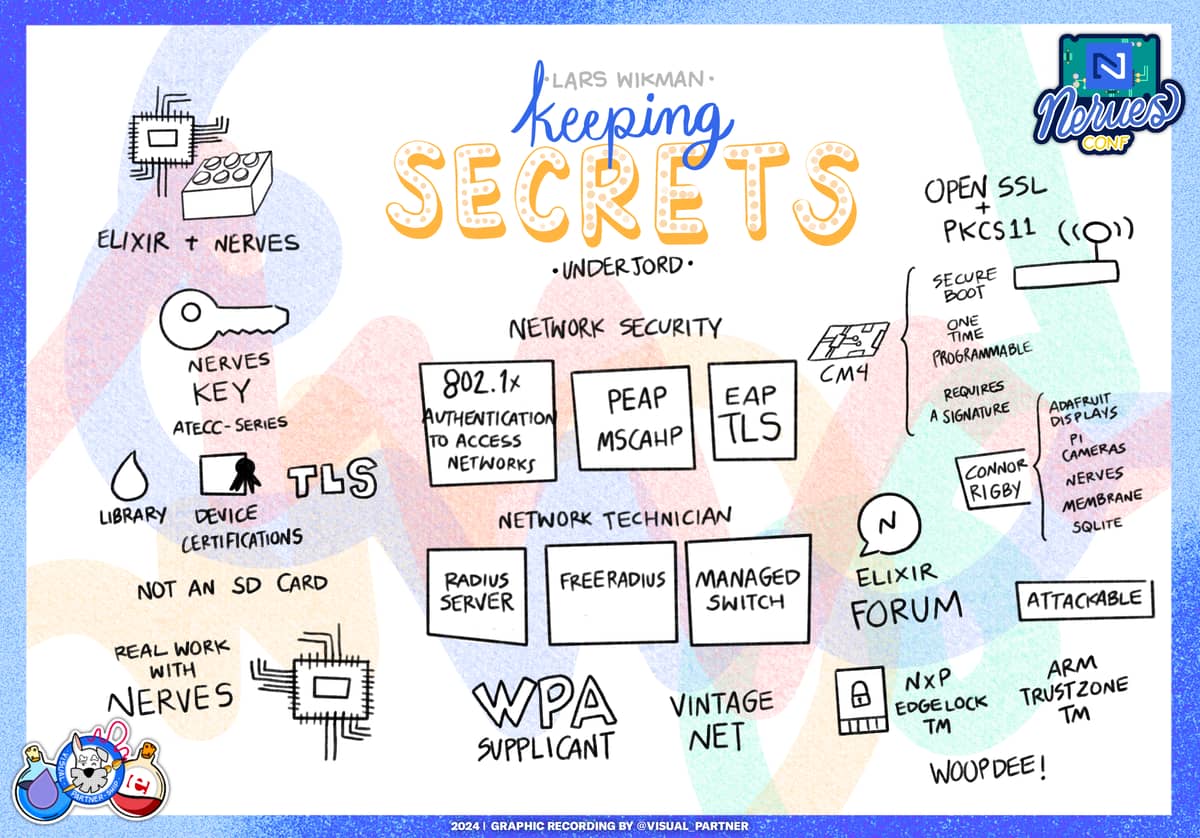 ·LARS WIKMAN·
keeping
SECRETS
·UNDERJORD·
N
Nerves
CONF
ELIXIR + NERVES
NERVES
KEY
ATECC-SERIES
LIBRARY
DEVICE
CERTIFICATIONS
TLS
NOT AN SD CARD
REAL WORK
WITH
NERVES
NETWORK SECURITY
802.1x
AUTHENTICATION
TO ACCESS
NETWORKS
PEAP
MSCAHP
EAP
TLS
NETWORK TECHNICIAN
RADIUS
SERVER
FREERADIUS
MANAGED
SWITCH
WPA
SUPPLICANT
VINTAGE
NET
OPEN SSL
+
PKCS11
CM4
SECURE
BOOT
ONE
TIME
PROGRAMMABLE
REQUIRES
A SIGNATURE
CONNOR
RIGBY
ADAFRUIT
DISPLAYS
PI
CAMERAS
NERVES
MEMBRANE
SQLITE
N
ELIXIR
FORUM
ATTACKABLE
NXP
EDGELOCK
TM
ARM
TRUSTZONE
TM
WOOPDEE!
VISUAL
PARTNER-SHIP
2024 | GRAPHIC RECORDING BY @VISUAL_PARTNER